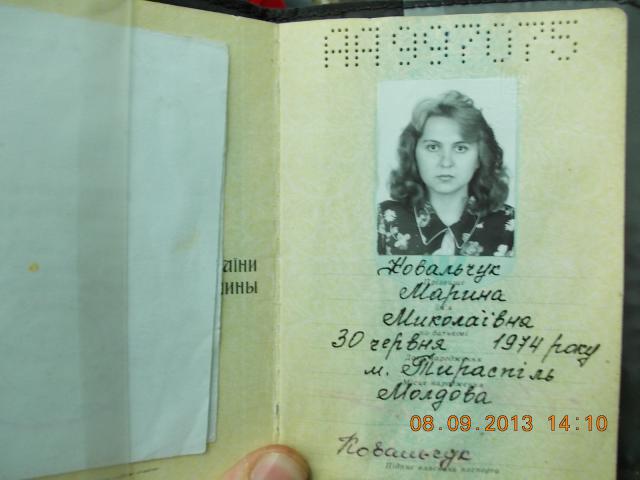 АА997075
аїни
ины
Ковальчук
Прізвище
Марина
Ім'я
Миколаївна
По батькові
30 червня 1974 року
Дата народження
м. Тираспіль
Місце народження
Молдова
08.09.2013 14:10
Ковальчук
Підпис власника паспорта